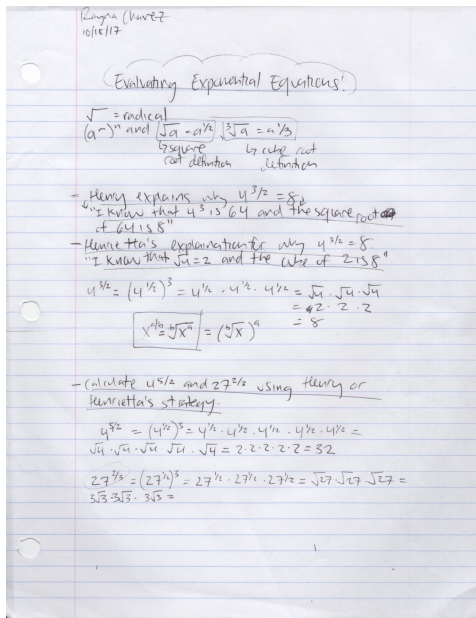 Rayna Chavez
10/18/17
Evaluating Exponential Equations!
√ = radical
(aᵐ)ⁿ and √a = a^1/2, ³√a = a^1/3
↳ square ↳ cube root
root definition definition
- Henry explains why 4^3/2 = 8
↳ "I know that 4³ is 64 and the square root
of 64 is 8"
- Henrietta's explaination for why 4^3/2 = 8
"I know that √4 = 2 and the cube of 2 is 8"
4^3/2 = (4^1/2)³ = 4^1/2 · 4^1/2 · 4^1/2 = √4 · √4 · √4
= 2 · 2 · 2
= 8
x^a/b = ᵇ√xᵃ = (ᵇ√x)ᵃ
- Calculate 4^5/2 and 27^2/3 using Henry or
Henrietta's strategy.
4^5/2 = (4^1/2)⁵ = 4^1/2 · 4^1/2 · 4^1/2 · 4^1/2 · 4^1/2 =
√4 · √4 · √4 √4 · √4 = 2·2·2·2·2 = 32
27^2/3 = (27^1/2)³ = 27^1/2 · 27^1/2 · 27^1/2 = √27 · √27 · √27 =
3√3 · 3√3 · 3√3 =